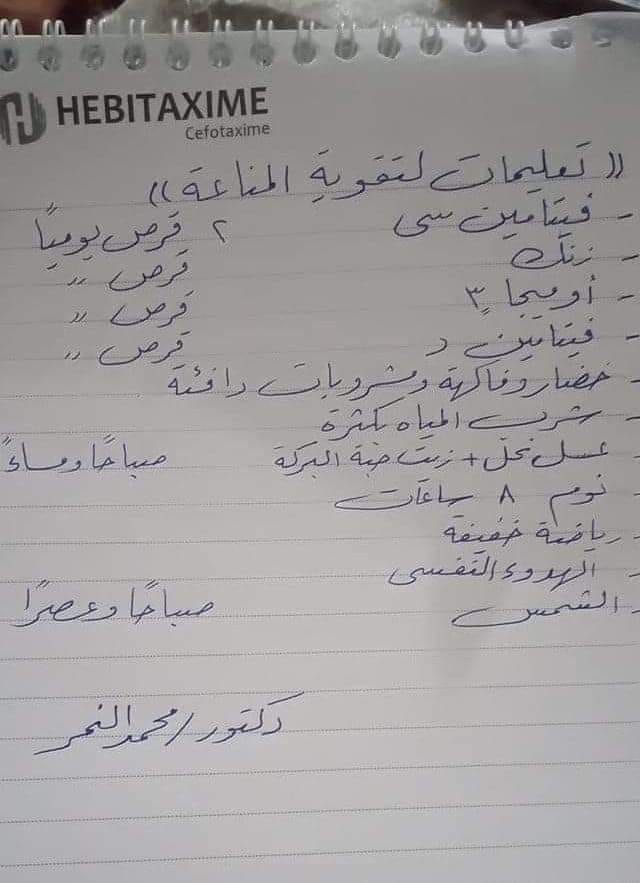 HEBITAXIME
Cefotaxime
(( تعليمات لتقوية المناعة ))
- فيتامين سى ٢ قرص يومياً
- زنك قرص "
- أوميجا ٣ قرص "
- فيتامين د قرص "
- خضار وفاكهة ومشروبات دافئة
- شرب المياه بكثرة
- عسل نحل + زيت حبة البركة صباحًا ومساءً
- نوم ٨ ساعات
- رياضة خفيفة
- الهدوء النفسى
- الشمس صباحًا وعصرًا
دكتور / محمد النمر